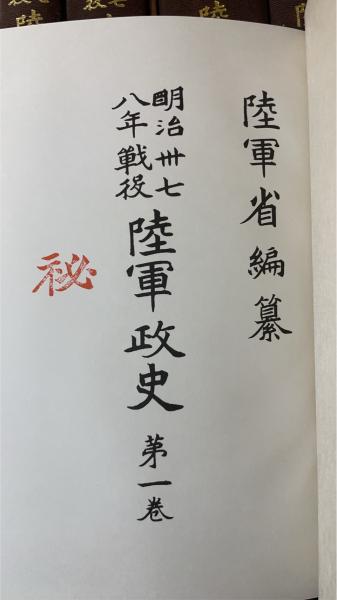 陸軍省編纂
明治卅七
八年戦役
陸軍政史 第一巻
秘